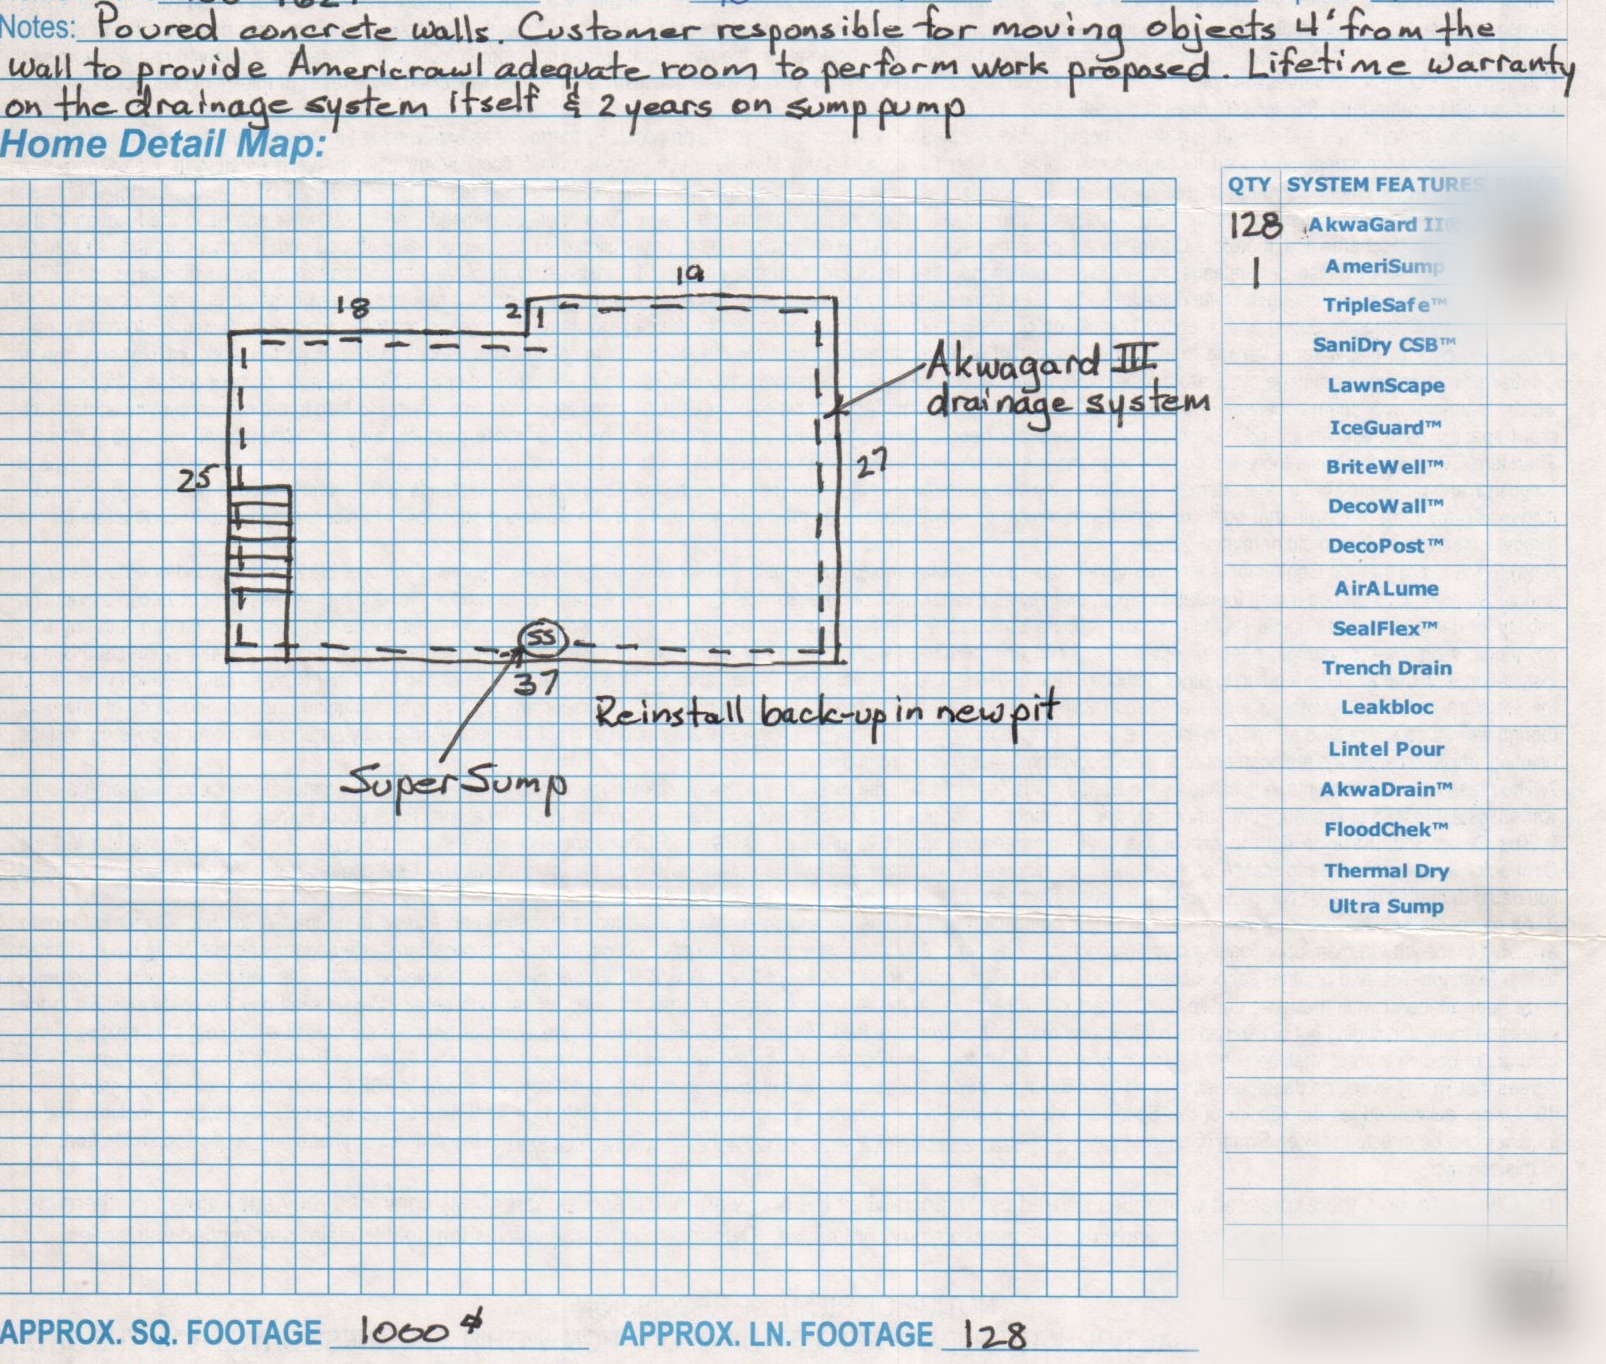 Notes: Poured concrete walls. Customer responsible for moving objects 4' from the
wall to provide Americrawl adequate room to perform work proposed. Lifetime warranty
on the drainage system itself & 2 years on sump pump
Home Detail Map:
QTY SYSTEM FEATURES
128 AkwaGard II®
1 AmeriSump
TripleSafe™
SaniDry CSB™
LawnScape
IceGuard™
BriteWell™
DecoWall™
DecoPost™
AirALume
SealFlex™
Trench Drain
Leakbloc
Lintel Pour
AkwaDrain™
FloodChek™
Thermal Dry
Ultra Sump
19
18
2
Akwagard III
drainage system
25
27
SS
37
Reinstall back-up in new pit
Super Sump
APPROX. SQ. FOOTAGE 1000 APPROX. LN. FOOTAGE 128